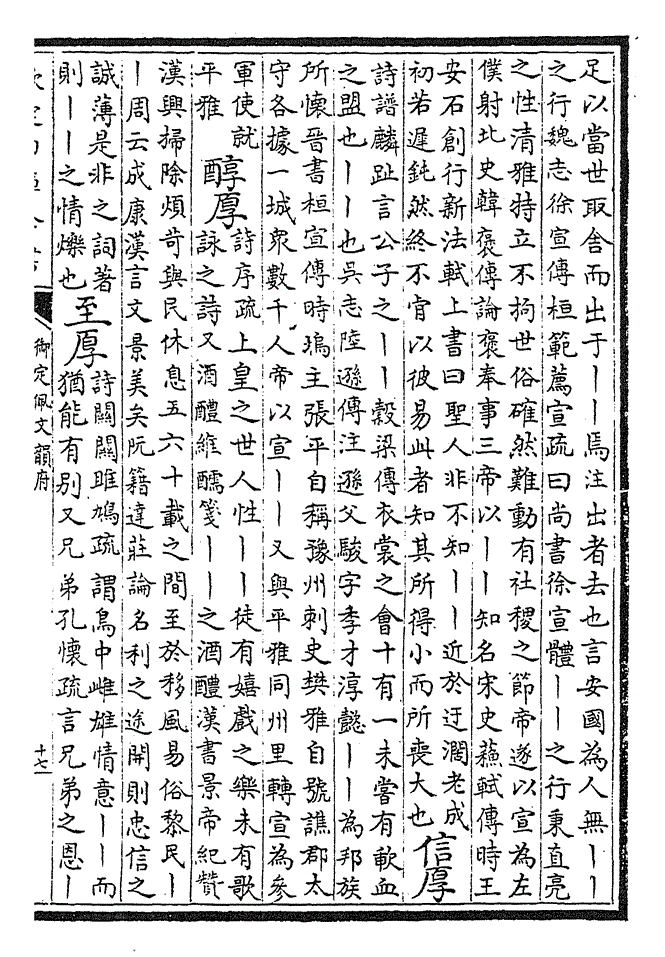 足以當世取舍而出于丨丨焉注出者去也言安國為人無丨丨
之行魏志徐宣傳桓範薦宣疏曰尚書徐宣體丨丨之行秉直亮
之性清雅特立不拘世俗確然難動有社稷之節帝遂以宣為左
僕射北史韓褒傳論褒奉事三帝以丨丨知名宋史蘇軾傳時王
安石創行新法軾上書曰聖人非不知丨丨近於迂濶老成
初若遲鈍然終不肯以彼易此者知其所得小而所喪大也信厚
詩譜麟趾言公子之丨丨穀梁傳衣裳之會十有一未嘗有歃血
之盟也丨丨也吳志陸遜傳注遜父駿字季才淳懿丨丨為邦族
所懷晉書桓宣傳時塢主張平自稱豫州刺史樊雅自號譙郡太
守各據一城衆數千人帝以宣丨丨又與平雅同州里轉宣為參
軍使就
平雅
醇厚
詩序疏上皇之世人性丨丨徒有嬉戲之樂未有歌
詠之詩又酒醴維醹箋丨丨之酒醴漢書景帝紀贊
漢興掃除煩苛與民休息五六十載之間至於移風易俗黎民丨
丨周云成康漢言文景美矣阮籍達莊論名利之途開則忠信之
誠薄是非之詞著
則丨丨之情爍也
至厚
詩關關雎鳩疏謂鳥中雌雄情意丨丨而
猶能有别又兄弟孔懷疏言兄弟之恩丨
御定佩文韻府
十七